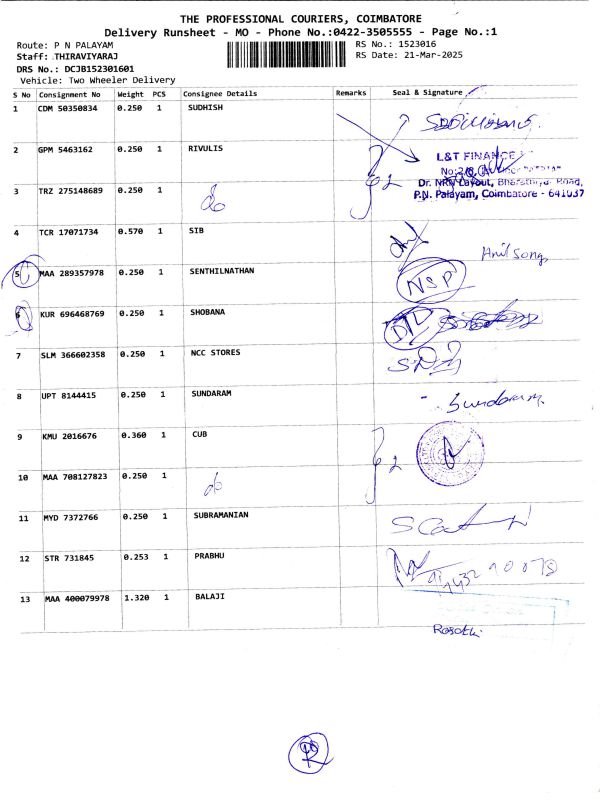 THE PROFESSIONAL COURIERS, COIMBATORE
Delivery Runsheet - MO - Phone No.:0422-3505555 - Page No.:1
Route: P N PALAYAM
RS No.: 1523016
Staff: THIRAVIYARAJ
RS Date: 21-Mar-2025
DRS No.: DCJB152301601
Vehicle: Two Wheeler Delivery
S No Consignment No Weight PCS Consignee Details Remarks Seal & Signature
1 CDM 50350834 0.250 1 SUDHISH
2 GPM 5463162 0.250 1 RIVULIS
L&T FINANCE
3 TRZ 275148689 0.250 1 do 2
Dr. NRN Layout, Bharathiyar Road,
P.N. Palayam, Coimbatore - 641037
4 TCR 17071734 0.570 1 SIB
Anil Song
5 MAA 289357978 0.250 1 SENTHILNATHAN NSP
6 KUR 696468769 0.250 1 SHOBANA DTL
7 SLM 366602358 0.250 1 NCC STORES
8 UPT 8144415 0.250 1 SUNDARAM
Sundaram
9 KMU 2016676 0.360 1 CUB
2
10 MAA 708127823 0.250 1 do
11 MYD 7372766 0.250 1 SUBRAMANIAN
12 STR 731845 0.253 1 PRABHU
13 MAA 400079978 1.320 1 BALAJI